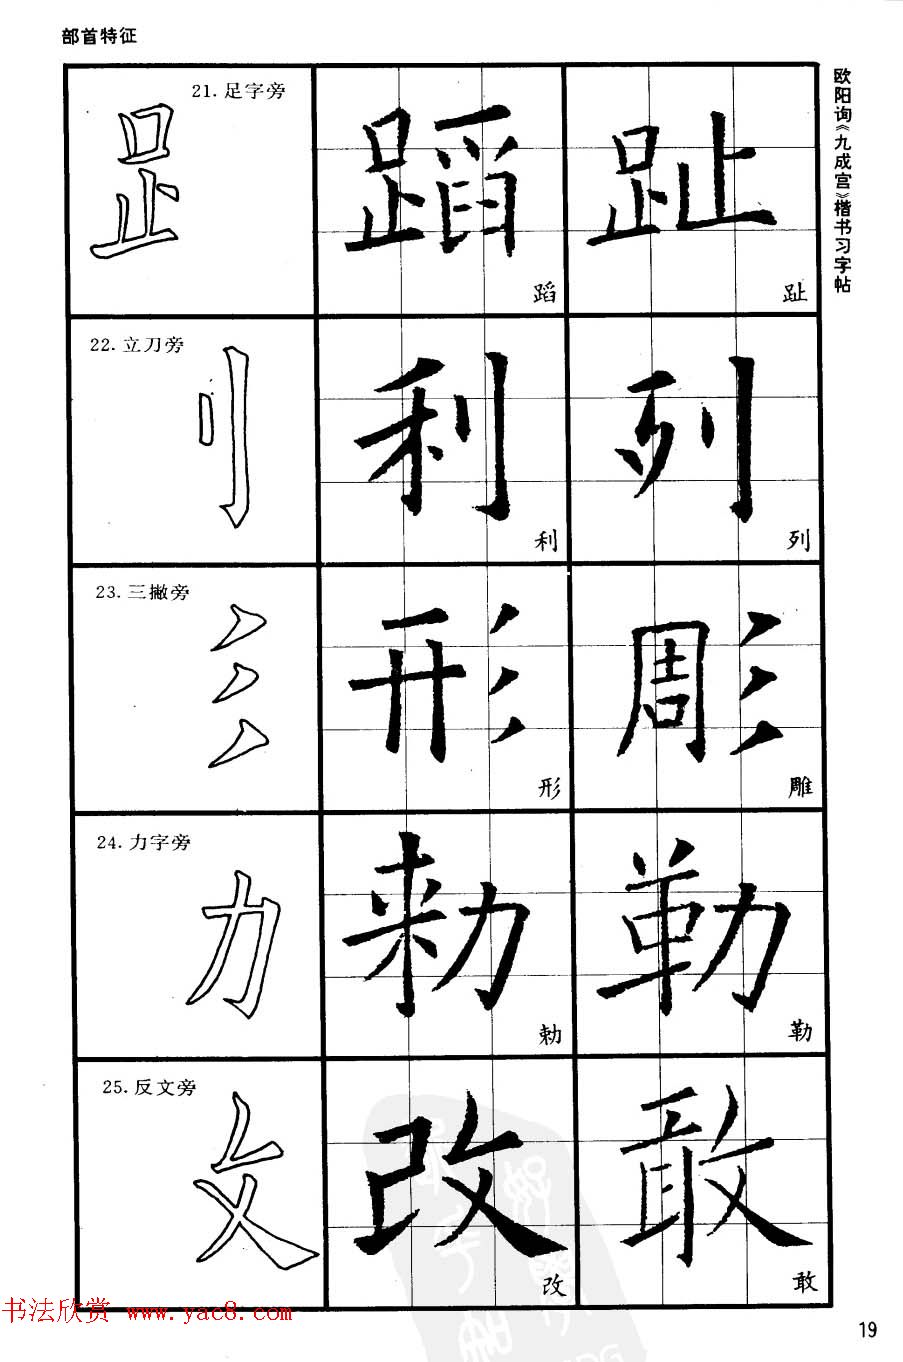 部首特征
欧阳询《九成宫》楷书习字帖
21.足字旁
蹈 趾
蹈 趾
22.立刀旁
利 列
利 列
23.三撇旁
形 彫
形 雕
24.力字旁
勑 勒
勑 勒
25.反文旁
改 敢
改 敢
书法欣赏 www.yac8.com
19